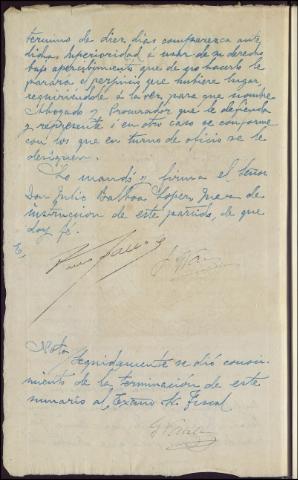 termino de diez dias comparezca ante
dicha Superioridad á usar de su derecho
bajo apercibimiento que de no hacerlo le
parára el perjuicio que hubiere lugar,
requiriéndole á la vez para que nombre
Abogado y Procurador que le defienda
y represente ó en otro caso se conforme
con los que en turno de oficio se le
designen.
Lo mandó y firma el Señor
Don Julio Balboa Lopez Juez de
instruccion de este partido, de que
doy fé.
Nota
Seguidamente se dió conoci-
miento de la terminacion de este
sumario al Excmo Sr. Fiscal